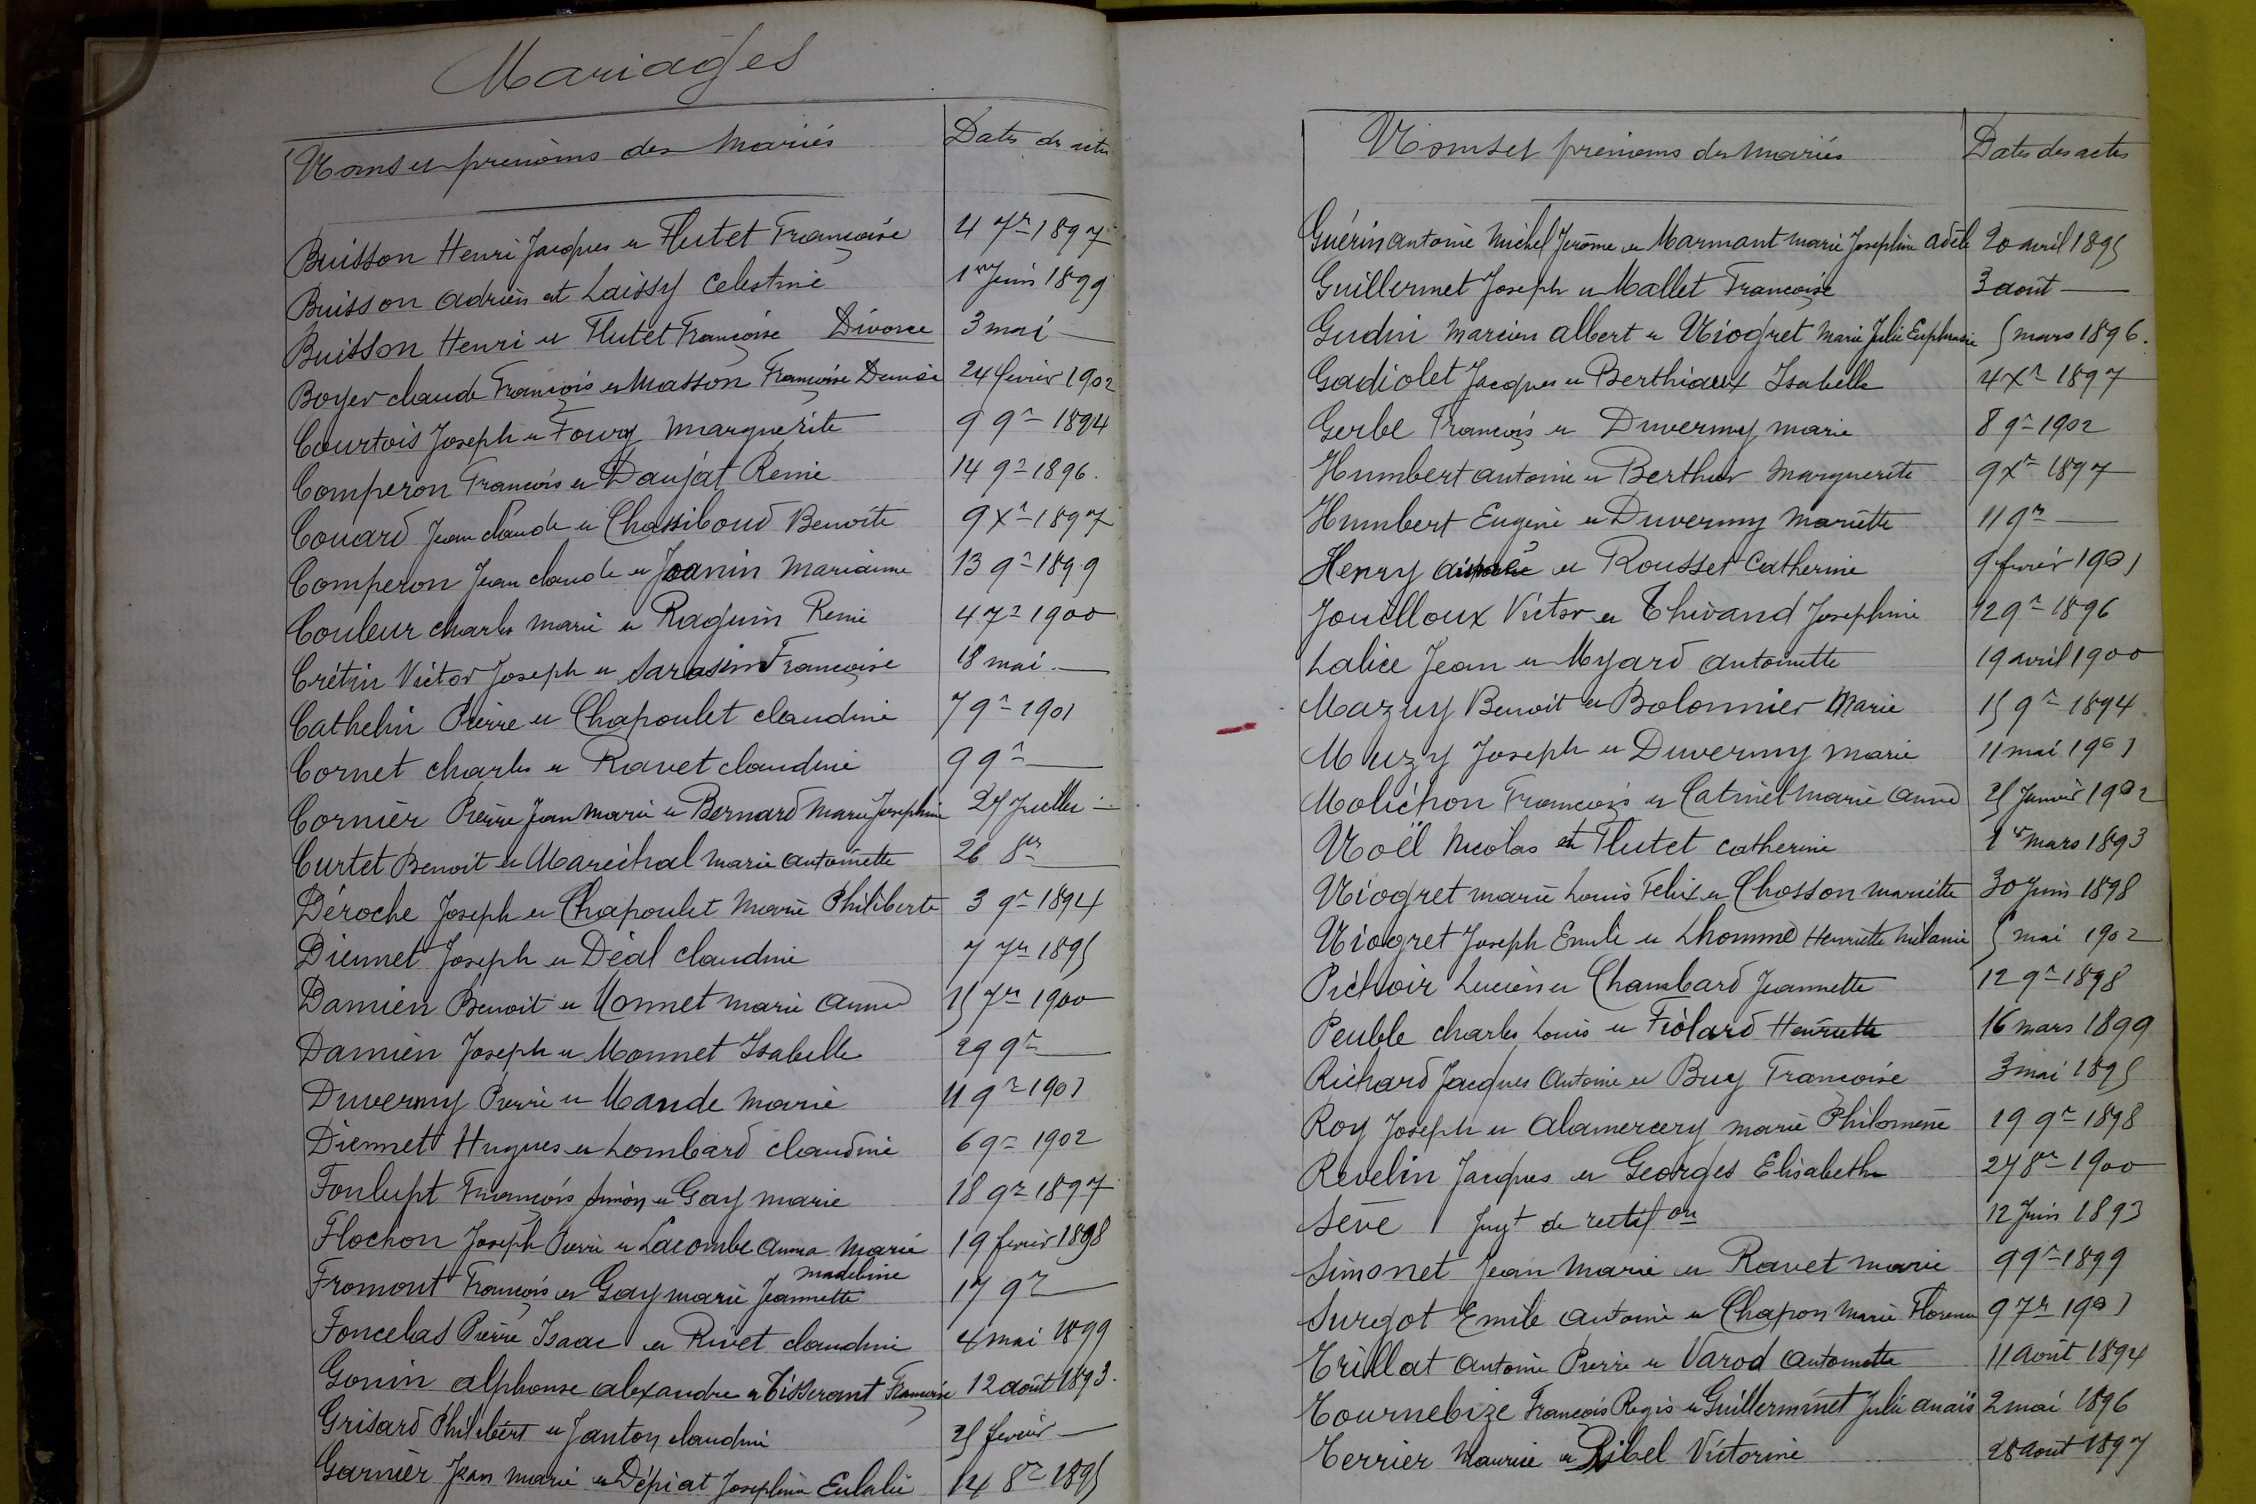 Mariages
Noms et prenoms des Mariés Dates des actes
Buisson Henri Jacques et Flutet Françoise 4 7re 1897
Buisson adrien et Laissy Celestine 1er Juin 1899
Buisson Henri et Flutet Françoise Divorce 3 mai —
Boyer claude François et Masson Françoise Denise 24 fevrier 1902
Courtois Joseph et Foury Marguerite 9 9re 1894
Comperon François et Daujat Remie 14 9re 1896.
Couard Jean claude et Chassiboud Benoite 9 Xre 1897
Comperon Jean claude et Joanin Marianne 13 9re 1899
Couleur charles marie et Raguin Remie 4 7re 1900
Crétin Victor Joseph et Sarasin Françoise 18 mai —
Cathelin Pierre et Chapoulet claudine 7 9re 1901
Cornet charles et Ravet claudine 9 9re —
Cornier Pierre Jean Marie et Bernard Marie Josephine 27 Juillet —
Curtet Benoit et Maréchal marie antoinette 26 8re —
Déroche Joseph et Chapoulet Marie Philiberte 3 9re 1894
Diennet Joseph et Déal claudine 7 7re 1895
Damien Benoit et Monnet marie anne 15 7re 1900
Damien Joseph et Monnet Isabelle 29 9re —
Duvermy Pierre et Mande Marie 11 9re 1901
Diennet Hugues et Lombard claudine 6 9re 1902
Fonlupt François Simon et Gay marie 18 9re 1897
Flochon Joseph Pierre et Lacombe anna Marie 19 fevrier 1898
madeleine
Fromont François et Gay marie Jeannette 17 9re —
Foncelas Pierre Isaac et Rivet claudine 4 mai 1899
Gonin alphonse alexandre et Tisserant Françoise 12 août 1893.
Grisard Philibert et Janton claudine 25 fevrier —
Garnier Jean marie et Dépiat Josephine Eulalie 14 8re 1895
Noms et prénoms des Mariés Dates des actes
Guérin antoine Michel Jerôme et Marmant marie Josephine adèle 20 avril 1895
Guillermet Joseph et Mallet Françoise 3 août —
Gudin Marcien albert et Niogret Marie Julie Euphrasie 5 mars 1896.
Gadiolet Jacques et Berthiaux Isabelle 4 Xre 1897
Gerbe François et Duvermy marie 8 9re 1902
Humbert antoine et Berthier Marguerite 9 Xre 1897
Humbert Eugène et Duvermy Mariette 11 9re —
Henry aimé et Rousset Catherine 9 fevrier 1901
Jouilloux Victor et Thivand Josephine 12 9re 1896
Lalice Jean et Myard antoinette 19 avril 1900
Mazuy Benoit et Bolomier Marie 15 9re 1894
Muzy Joseph et Duvermy marie 11 mai 1901
Molichon François et Catinet marie anne 25 Janvier 1902
Noël Nicolas et Flutet catherine 1er mars 1893
Niogret marie Louis Felix et Chosson mariette 30 Juin 1898
Niogret Joseph Emile et Lhomme Henriette Mélanie 5 mai 1902
Pichoir Lucien et Chambard Jeannette 12 9re 1898
Peuble charles Louis et Fiolard Henriette 16 mars 1899
Richard Jacques Antoine et Buy Françoise 3 mai 1895
Roy Joseph et Alamercery marie Philomène 19 9re 1898
Revelin Jacques et Georges Elisabeth 27 8re 1900
Sève Jugt de rectifon 12 Juin 1893
Simonet Jean Marie et Ravet marie 9 9re 1899
Surgot Emile antoine et Chapon Marie Florence 9 7re 1901
Trillat antoine Pierre et Varod antoinette 11 août 1894
Tournebize François Regis et Guillerminet Julie anaïs 2 mai 1896
Terrier Maurice et Ribel Victorine 28 août 1897